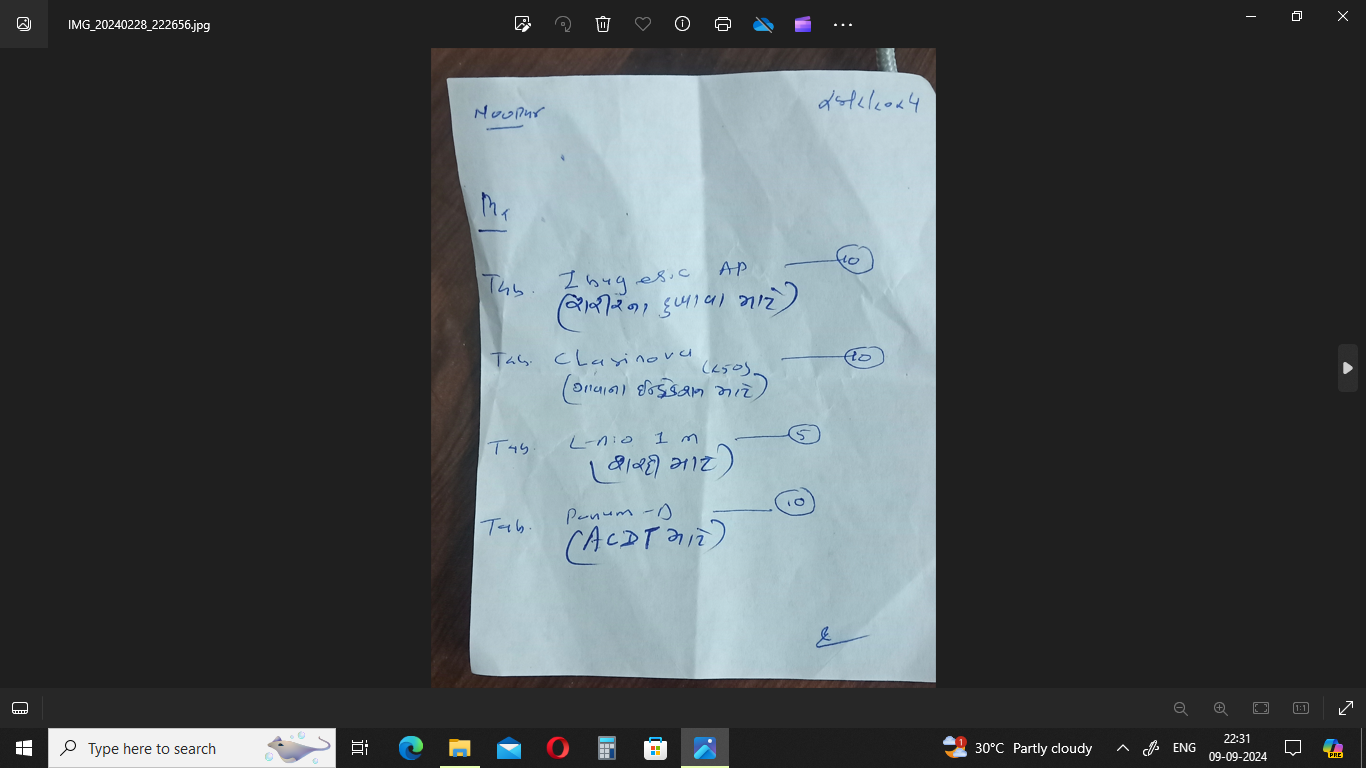 IMG_20240228_222656.jpg
Noopur
Rx
Tab. Ibugesic AP 10
(શરીરના દુખાવા માટે)
Tab. Clarinova (250) 10
(ગળાના ઈન્ફેકશન માટે)
Tab. 5
(શરદી માટે)
Tab. Panum-D 10
(ACDT માટે)
Type here to search
30°C Partly cloudy
ENG
22:31
09-09-2024
1:1
PRE
1